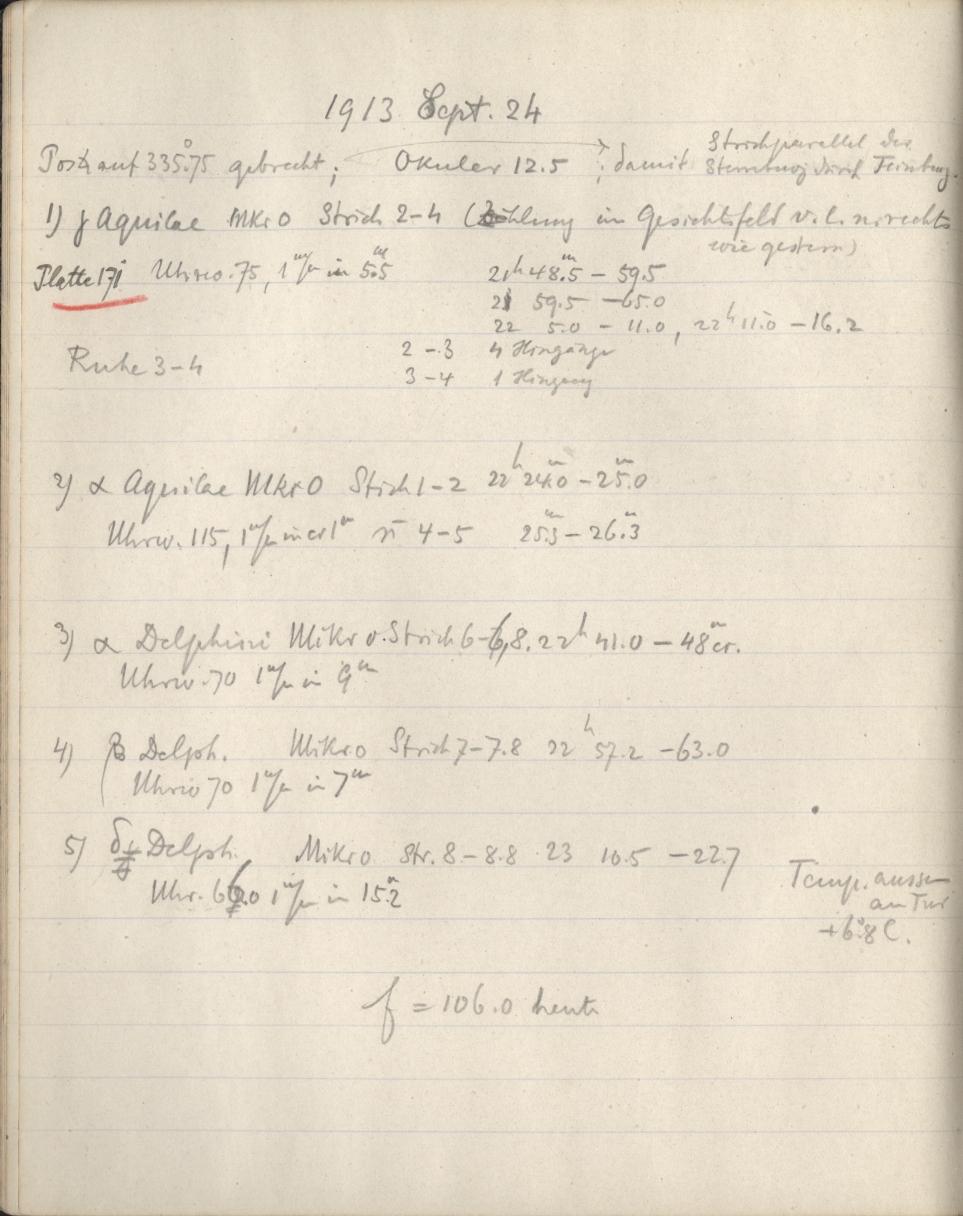 1913 Sept. 24
Posk auf 335°.75 gebracht; Okular 12.5; damit Strich parallel der
Sternbewg durch Feinbewg.
1) γ Aquilae Mkr 0 Strich 2-4 (Zählung im Gesichtsfeld v. l. n. rechts
wie gestern)
Platte 171 Uhrw. 75, 1 m/m in 5.5m 21h 48.5 - 59.5
21 59.5 - 65.0
22 5.0 - 11.0, 22h 11.0 - 16.2
Ruhe 3-4 2-3 4 Hingänge
3-4 1 Hingang
2) α Aquilae Mkr 0 Strich 1-2 22h 24.0m - 25.0m
Uhrw. 115, 1 m/m in cr 1m 4-5 25.3m - 26.3m
3) α Delphini Mikr 0. Strich 6-6,8. 22h 41.0 - 48m cr.
Uhrw. 70 1 m/m in 9m
4) β Delph. Mikr 0 Strich 7-7.8 22h 57.2 - 63.0
Uhrw 70 1 m/m in 7m
5) δ Delph. Mikr 0 Str. 8-8.8 23 10.5 - 22.7
Uhr. 60 1 m/m in 15.2m
Temp. aussen
an Tür
+6°.8 C.
f = 106.0 heute